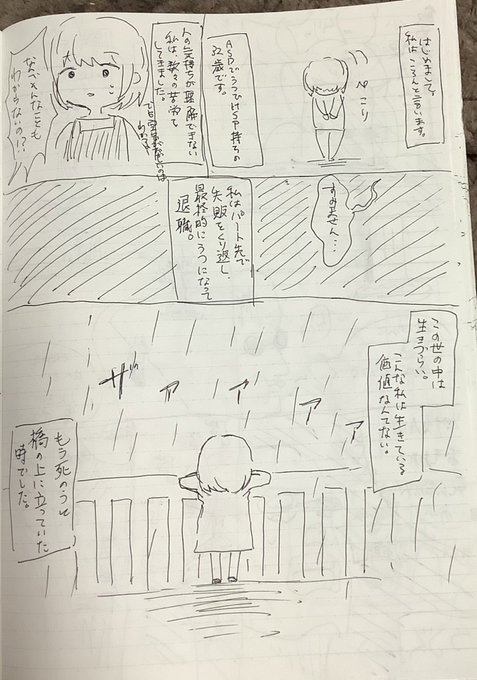 はじめまして、
私はころんと言います。
ペこり
ASDでうつでHSP持ちの
32歳です。
人の気持ちが理解できない
私は、数々の苦労を
してきました。
なんでそんなことも
わからないの!?
すみません…
私はパート先で
失敗をくり返し、
最終的にうつになって
退職。
この世の中は
生きづらい。
こんな私は生きている
価値なんてない。
ザァァァァ
もう死のうと
橋の上に立っていた
時でした。